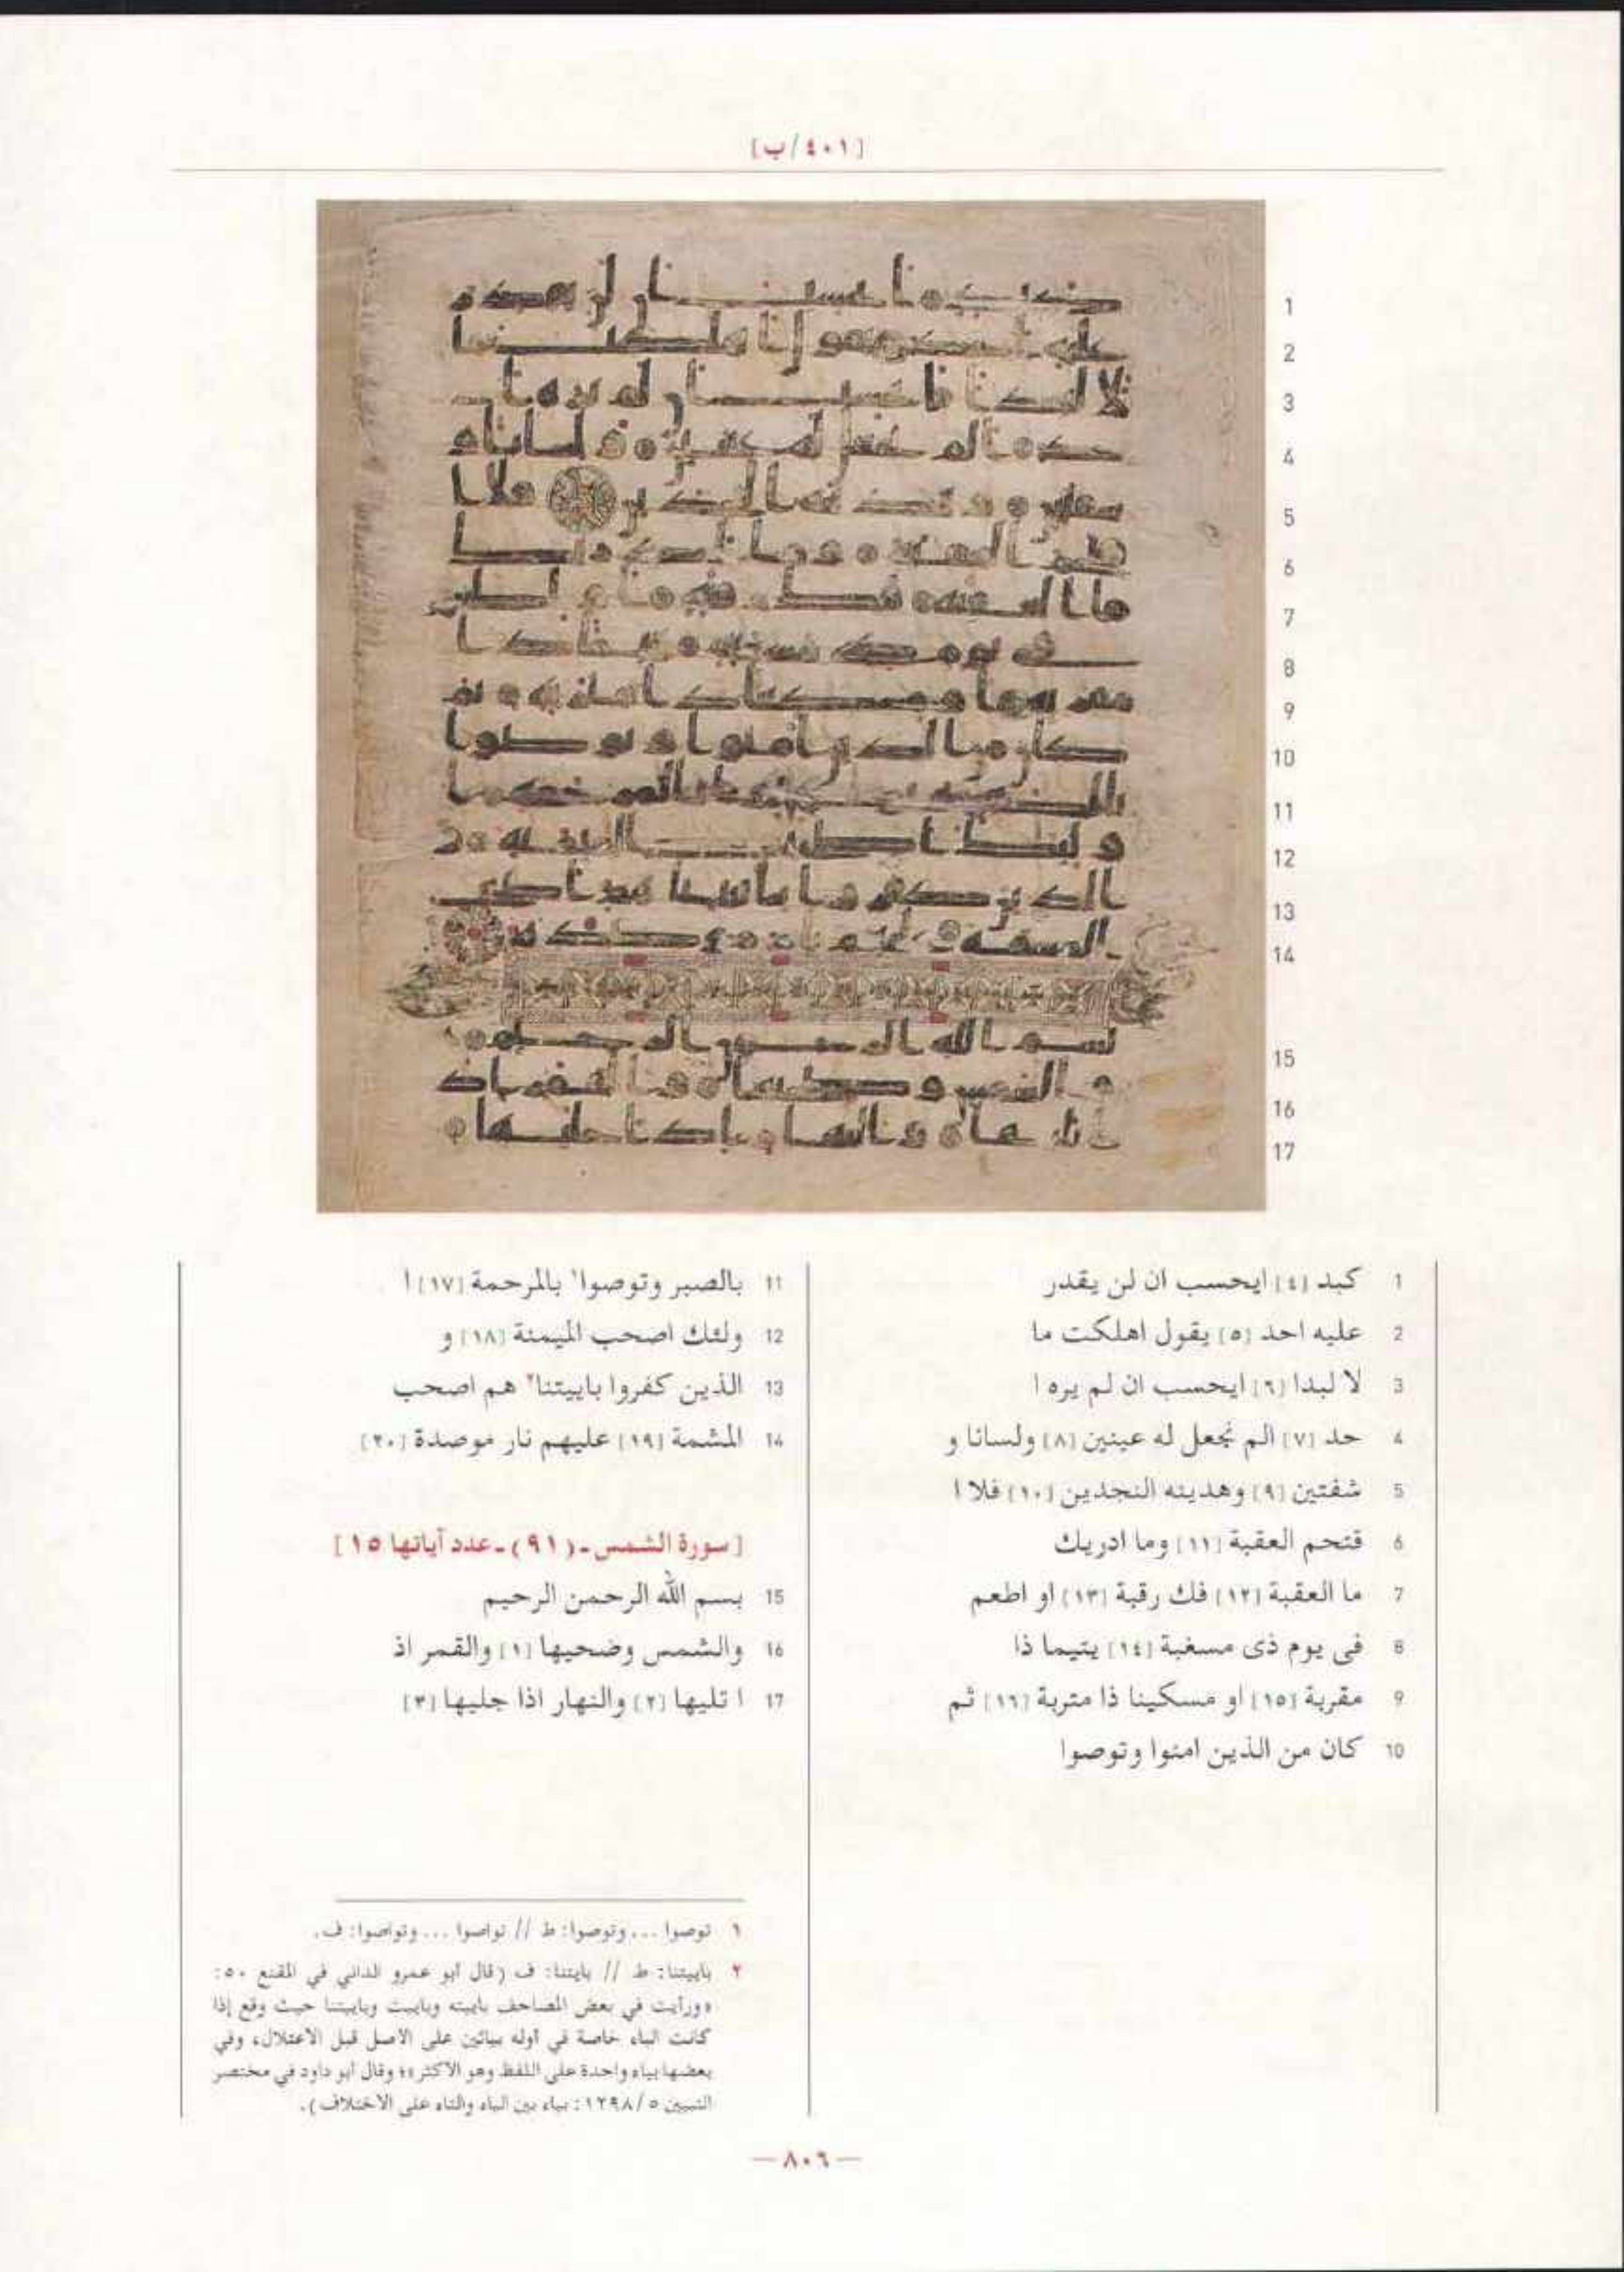 [٤٠١/ب]
1
2
3
4
5
6
7
8
9
10
11
12
13
14
15
16
17
1 كبد [٤] ايحسب ان لن يقدر
2 عليه احد [٥] يقول اهلكت ما
3 لا لبدا [٦] ايحسب ان لم يره ا
4 حد [٧] الم نجعل له عينين [٨] ولسانا و
5 شفتين [٩] وهدينه النجدين [١٠] فلا ا
6 قتحم العقبة [١١] وما ادريك
7 ما العقبة [١٢] فك رقبة [١٣] او اطعم
8 في يوم ذى مسغبة [١٤] يتيما ذا
9 مقربة [١٥] او مسكينا ذا متربة [١٦] ثم
10 كان من الذين امنوا وتوصوا
11 بالصبر وتوصوا١ بالمرحمة [١٧] ا
12 ولئك اصحب الميمنة [١٨] و
13 الذين كفروا باييتنا٢ هم اصحب
14 المشمة [١٩] عليهم نار موصدة [٢٠]
[سورة الشمس - (٩١) - عدد آياتها ١٥]
15 بسم الله الرحمن الرحيم
16 والشمس وضحيها [١] والقمر اذ
17 ا تليها [٢] والنهار اذا جليها [٣]
١ توصوا ... وتوصوا: ط // تواصوا ... وتواصوا: ف.
٢ باييتنا: ط // بايتنا: ف (قال أبو عمرو الداني في المقنع ٥٠:
«ورأيت في بعض المصاحف باييته وباييت وباييتنا حيث وقع إذا
كانت الباء خاصة في أوله بيائين على الأصل قبل الاعتلال، وفي
بعضها بياء واحدة على اللفظ وهو الأكثر»؛ وقال أبو داود في مختصر
التبيين ١٢٩٨/٥: بياء بين الباء والتاء على الاختلاف).
— ٨٠٦ —